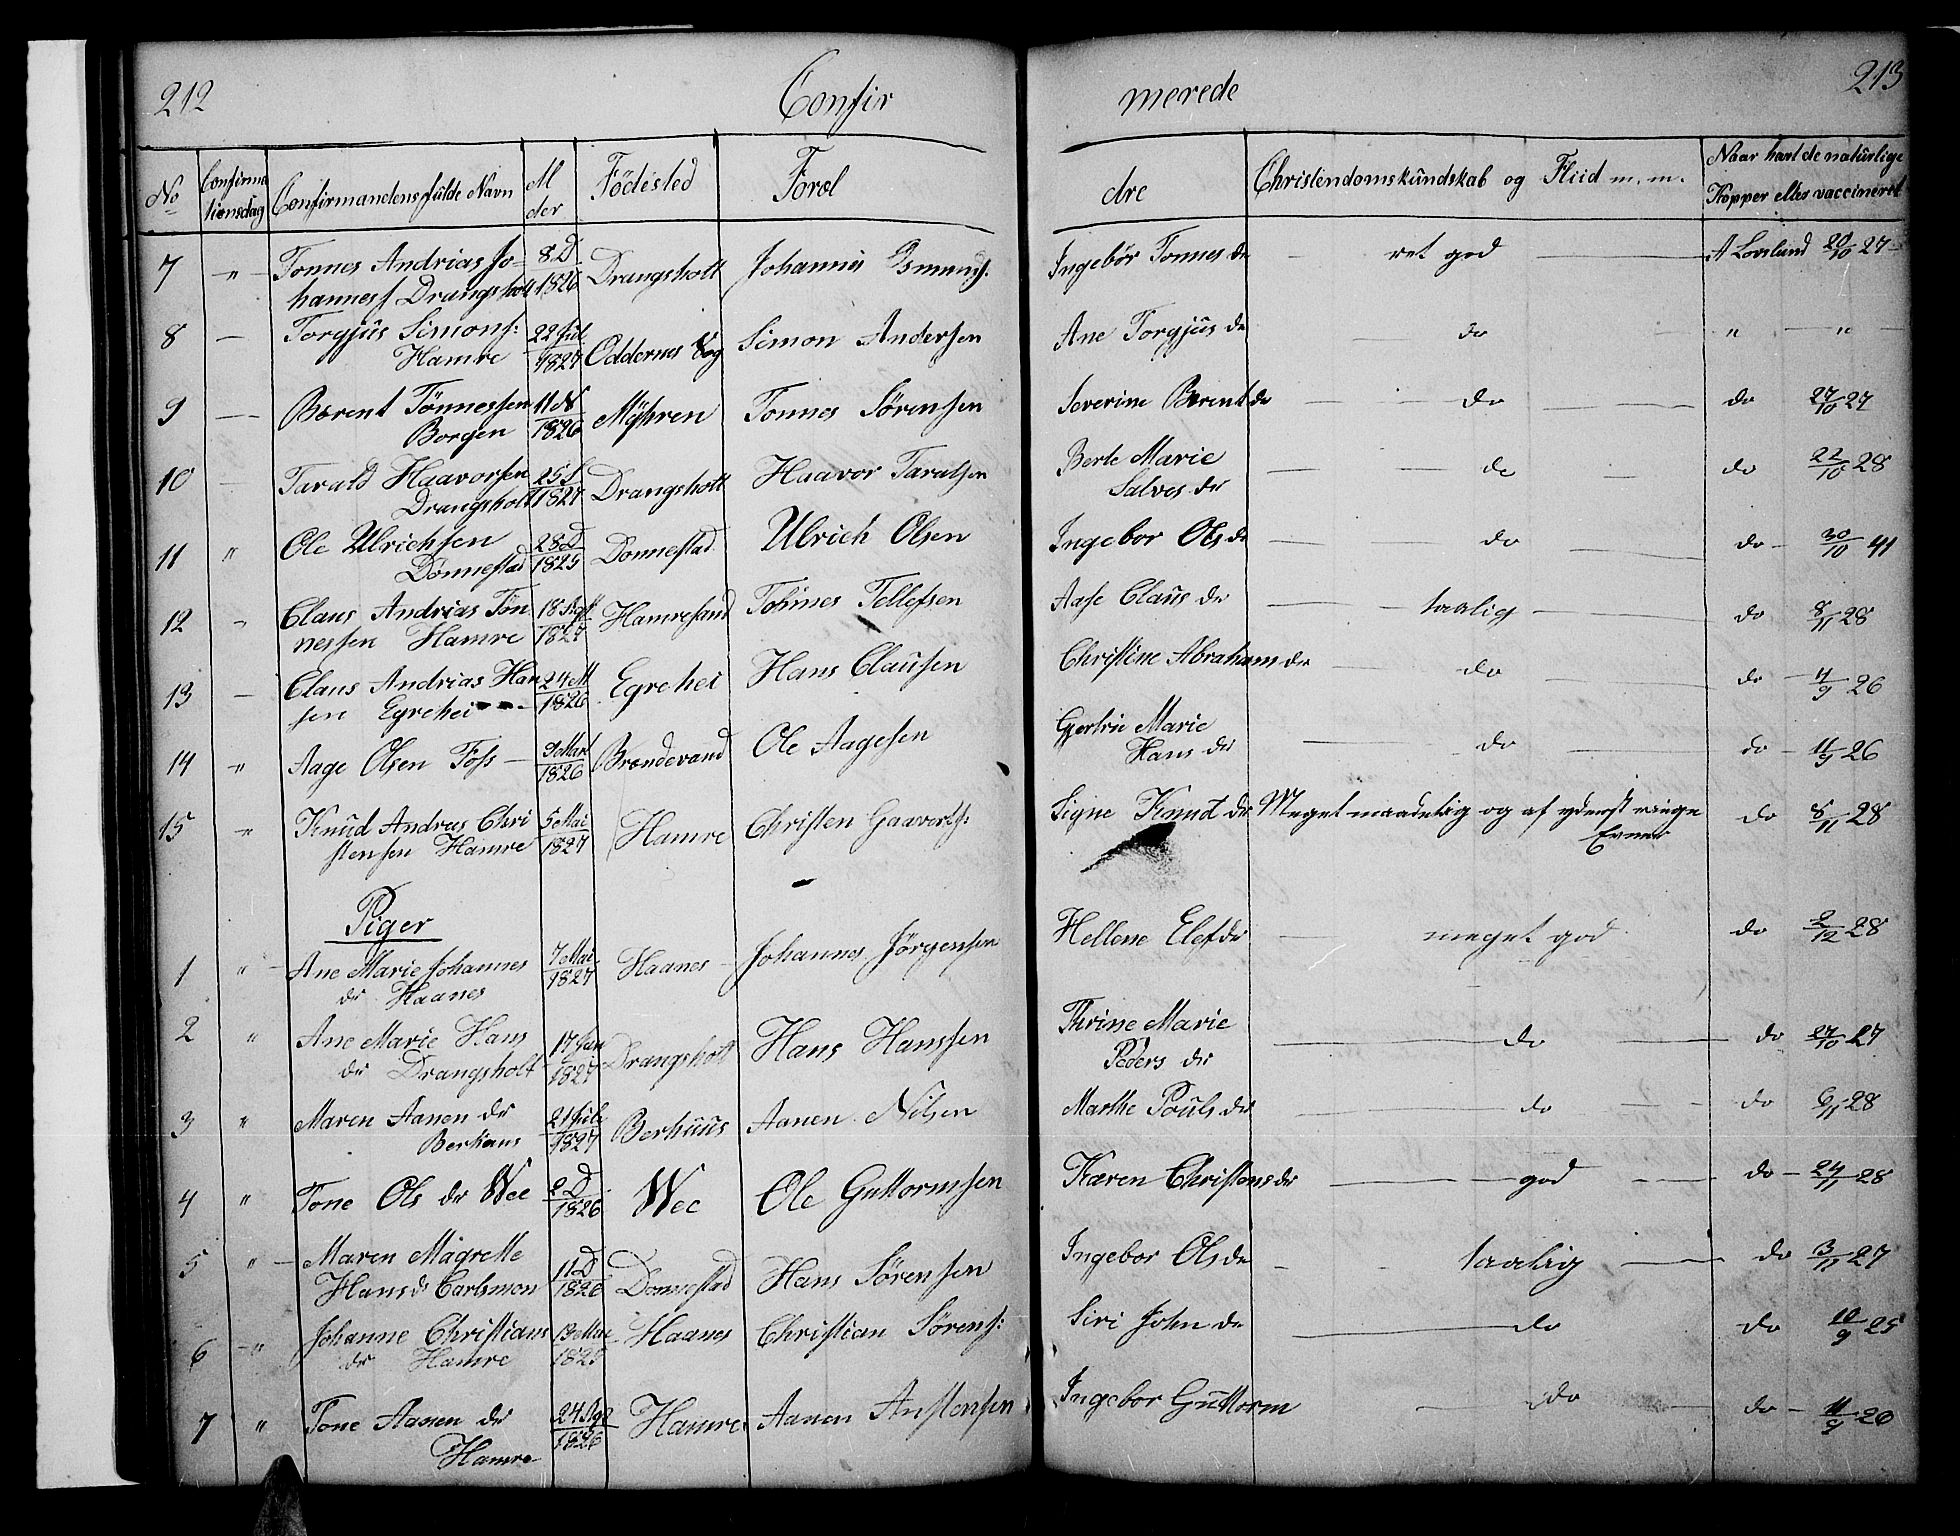 212
Confir
merede
213
No
Confirma
tionsdag
Confirmandens fulde Navn
Al
der
Födested
Foræl
dre
Christendomskundskab og Fliid m. m.
Naar havt de naturlige
Kopper eller vaccineret
7 " Tonnes Andrias Jo-
hanness Drangsholt 8 D 1826 Drangsholt Johannes Ingebor Tonnes dr ret god A Lovelund 20/10 27
8 — Torgjus Simons:
Hamre 22 Jul 1827 Oddernes Sog Simon Andersen Ane Torgjus dr do " "
9 — Berent Tönnessen
Borgen 11 N 1826 Myhren Tonnes Sörensen Severine Berent dr do do 27/10 27
10 Tarald Haavorsen
Drangsholt 25 S 1827 Drangsholt Haavor Taralsen Berte Marie
Salves dr do do 22/10 28
11 " Ole Ulrichsen
Donnestad 28 D 1825 Donnestad Ulrich Olsen Ingebor Ols dr do do 30/10 41
12 " Claus Andrias Tön
nessen Hamre 18 Agt 1827 Hamresand Tönnes Tellefsen Aase Claus dr taalig do 8/11 28
13 — Claus Andrias Han
sen Egrehei 24 M 1826 Egrehei Hans Clausen Christine Abraham dr do do 11/9 26
14 " Aage Olsen Foss 9 Mart 1826 Brændevand Ole Aagesen Gjertrü Marie
Hans dr do do 11/9 26
15 " Knud Andreas Chri
stensen Hamre 5 Mai 1827 Hamre Christen Gaavorts: Signe Knud dr Meget maadelig og af yderst ringe
Evner do 8/11 28
Piger
1 " Ane Marie Johannes
dr Haanes 7 Mai 1827 Haanes Johannes Jörgensen Hellene Elef dr meget god do 2/12 28
2 " Ane Marie Hans
dr Drangsholt 17 Jan 1827 Drangsholt Hans Hanssen Thrine Marie
Peders dr do do 27/10 27
3 " Maren Aanen dr
Berhuus 21 Jul 1827 Berhuus Aanen Nilsen Marthe Pouls dr do do 6/11 28
4 " Tone Ols dr Wee 2 D 1826 Wee Ole Guttormsen Karen Christens dr god do 24/11 28
5 " Maren Magrette
Hans dr Carlsmon 11 D 1826 Donnestad Hans Sörensen Ingebor Ols dr taalig do 3/11 27
6 " Johanne Christians
dr Hamre 13 Mai 1825 Haanes Christian Sörens: Siri John dr do do 10/9 25
7 " Tone Aanen dr
Hamre 24 Agt 1826 Hamre Aanen Anstensen Ingebor Guttorm do do 11/9 26